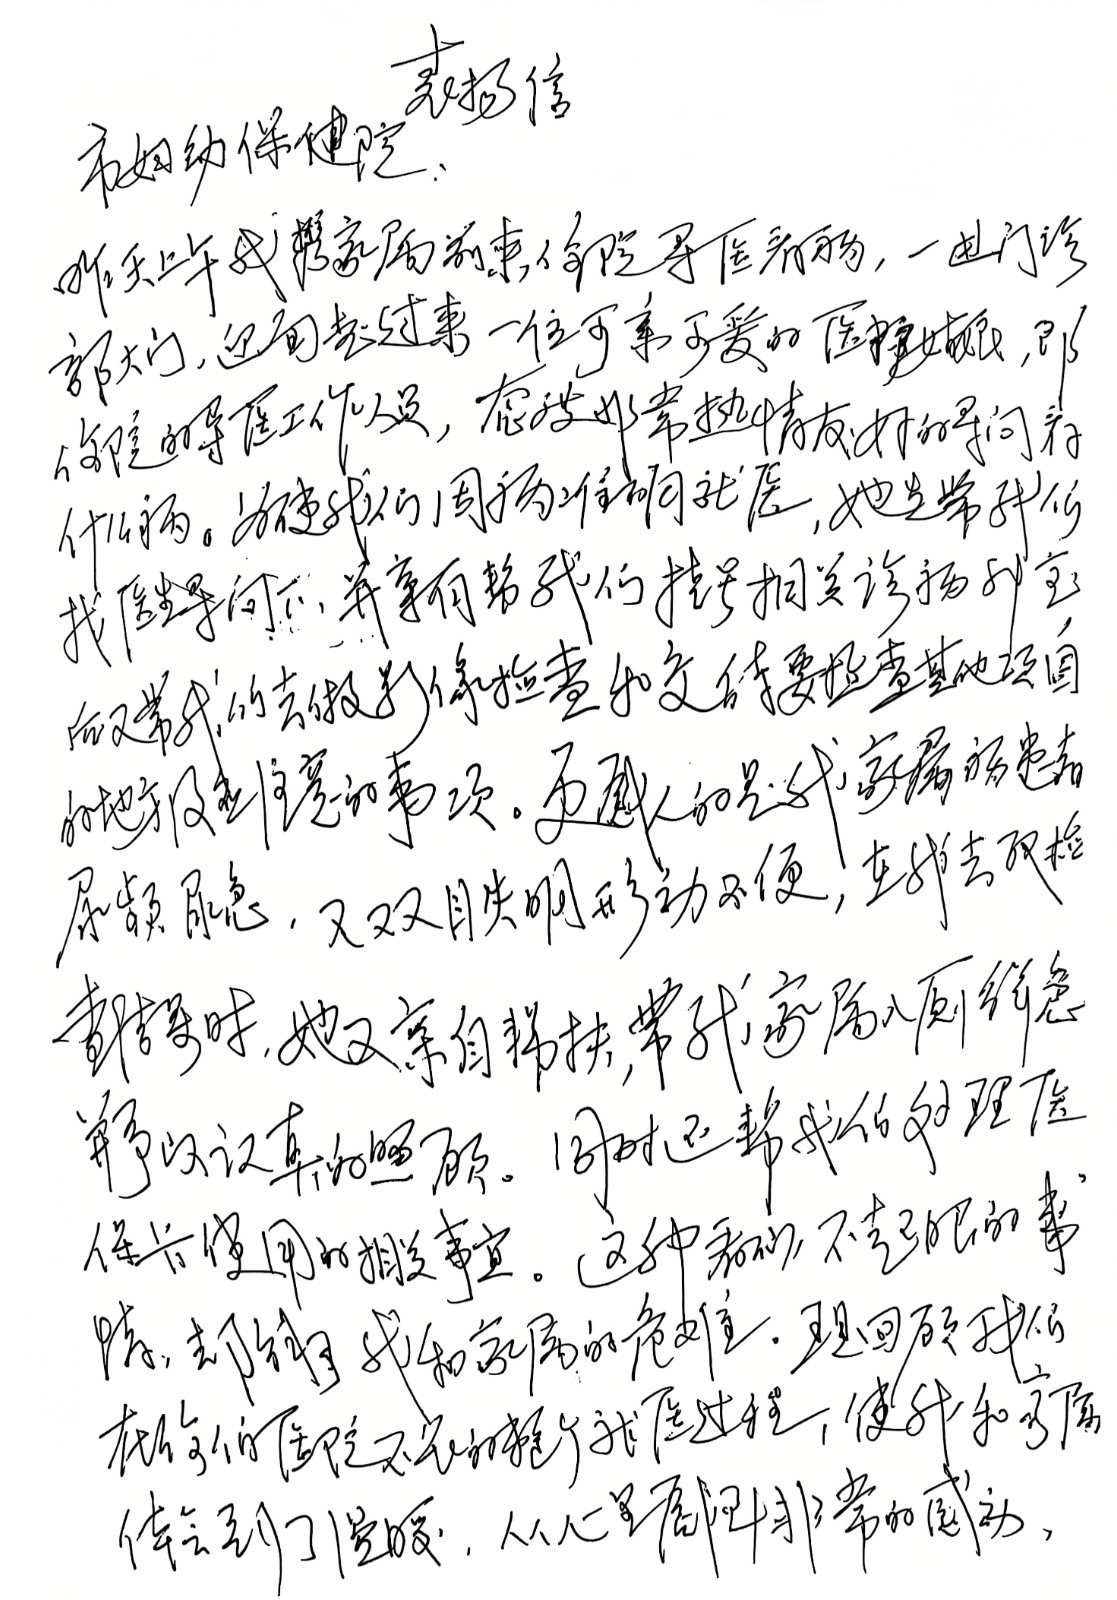 表扬信
市妇幼保健院：
昨天上午我携家属前来你院寻医看病，一进门诊
部大门，迎面走过来一位可亲可爱的医护姑娘，即
你院的导医工作人员，态度非常热情友好的寻问看
什么病。为使我们因病准确就医，她先带我们
找医生寻问了，并亲自帮我们挂号相关诊病科室，
后又带我们去做影像检查和交待要检查其他项目
的地方及注意的事项。更感人的是，我家属病患者
尿频尿急，又双目失明形动不便，在我去取检
查结果时，她又亲自搀扶，带我家属入厕解急
并予以认真的照顾。同时还帮我们处理医
保卡使用的相关事宜。这种看似不起眼的事
情，却解了我和家属的危难。现回顾我们
在你们医院不长的整个就医过程，使我和家属
体会到了温暖，从心里感到非常的感动，